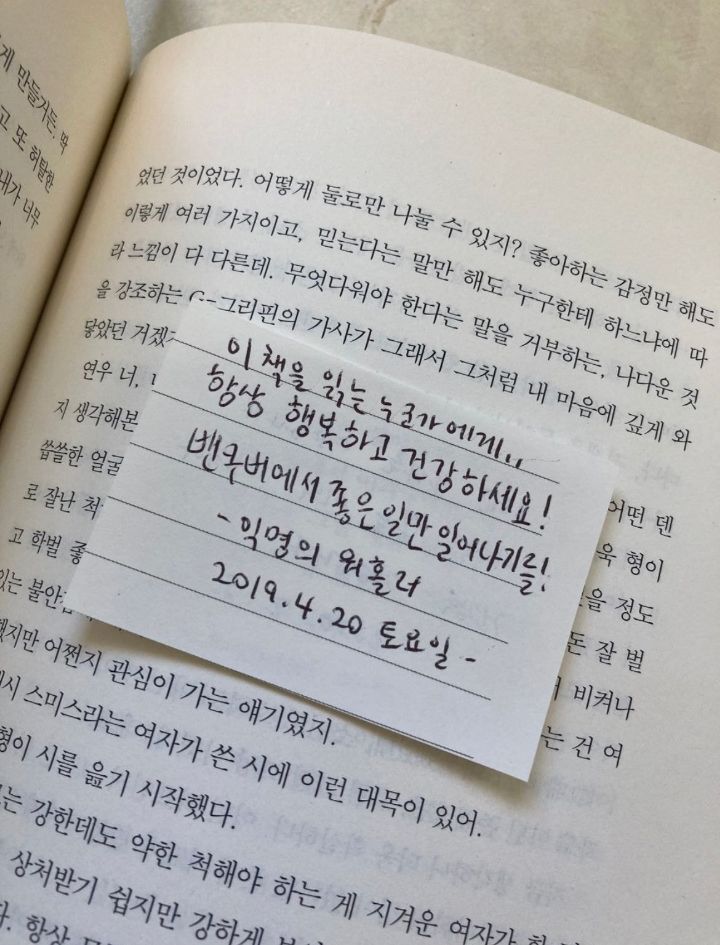 게 만들거든. 딱
고 또 허탈한
내가 너무
었던 것이었다. 어떻게 둘로만 나눌 수 있지? 좋아하는 감정만 해도
이렇게 여러 가지이고, 믿는다는 말만 해도 누구한테 하느냐에 따
라 느낌이 다 다른데. 무엇다워야 한다는 말을 거부하는, 나다운 것
을 강조하는 G-그리핀의 가사가 그래서 그처럼 내 마음에 깊게 와
닿았던 거겠
연우 너,
지 생각해본
씁쓸한 얼굴
어떤 덴
로 잘난 척
욱 형이
고 학벌 좋
을 정도
있는 불안
돈 잘 벌
했지만 어쩐지 관심이 가는 얘기였지.
비켜나
시 스미스라는 여자가 쓴 시에 이런 대목이 있어.
는 건 여
형이 시를 읊기 시작했다.
는 강한데도 약한 척해야 하는 게 지겨운 여자가
상처받기 쉽지만 강하게
항상
이 책을 읽는 누군가에게..
항상 행복하고 건강하세요!
밴쿠버에서 좋은 일만 일어나기를!
- 익명의 워홀러
2019.4.20 토요일 -